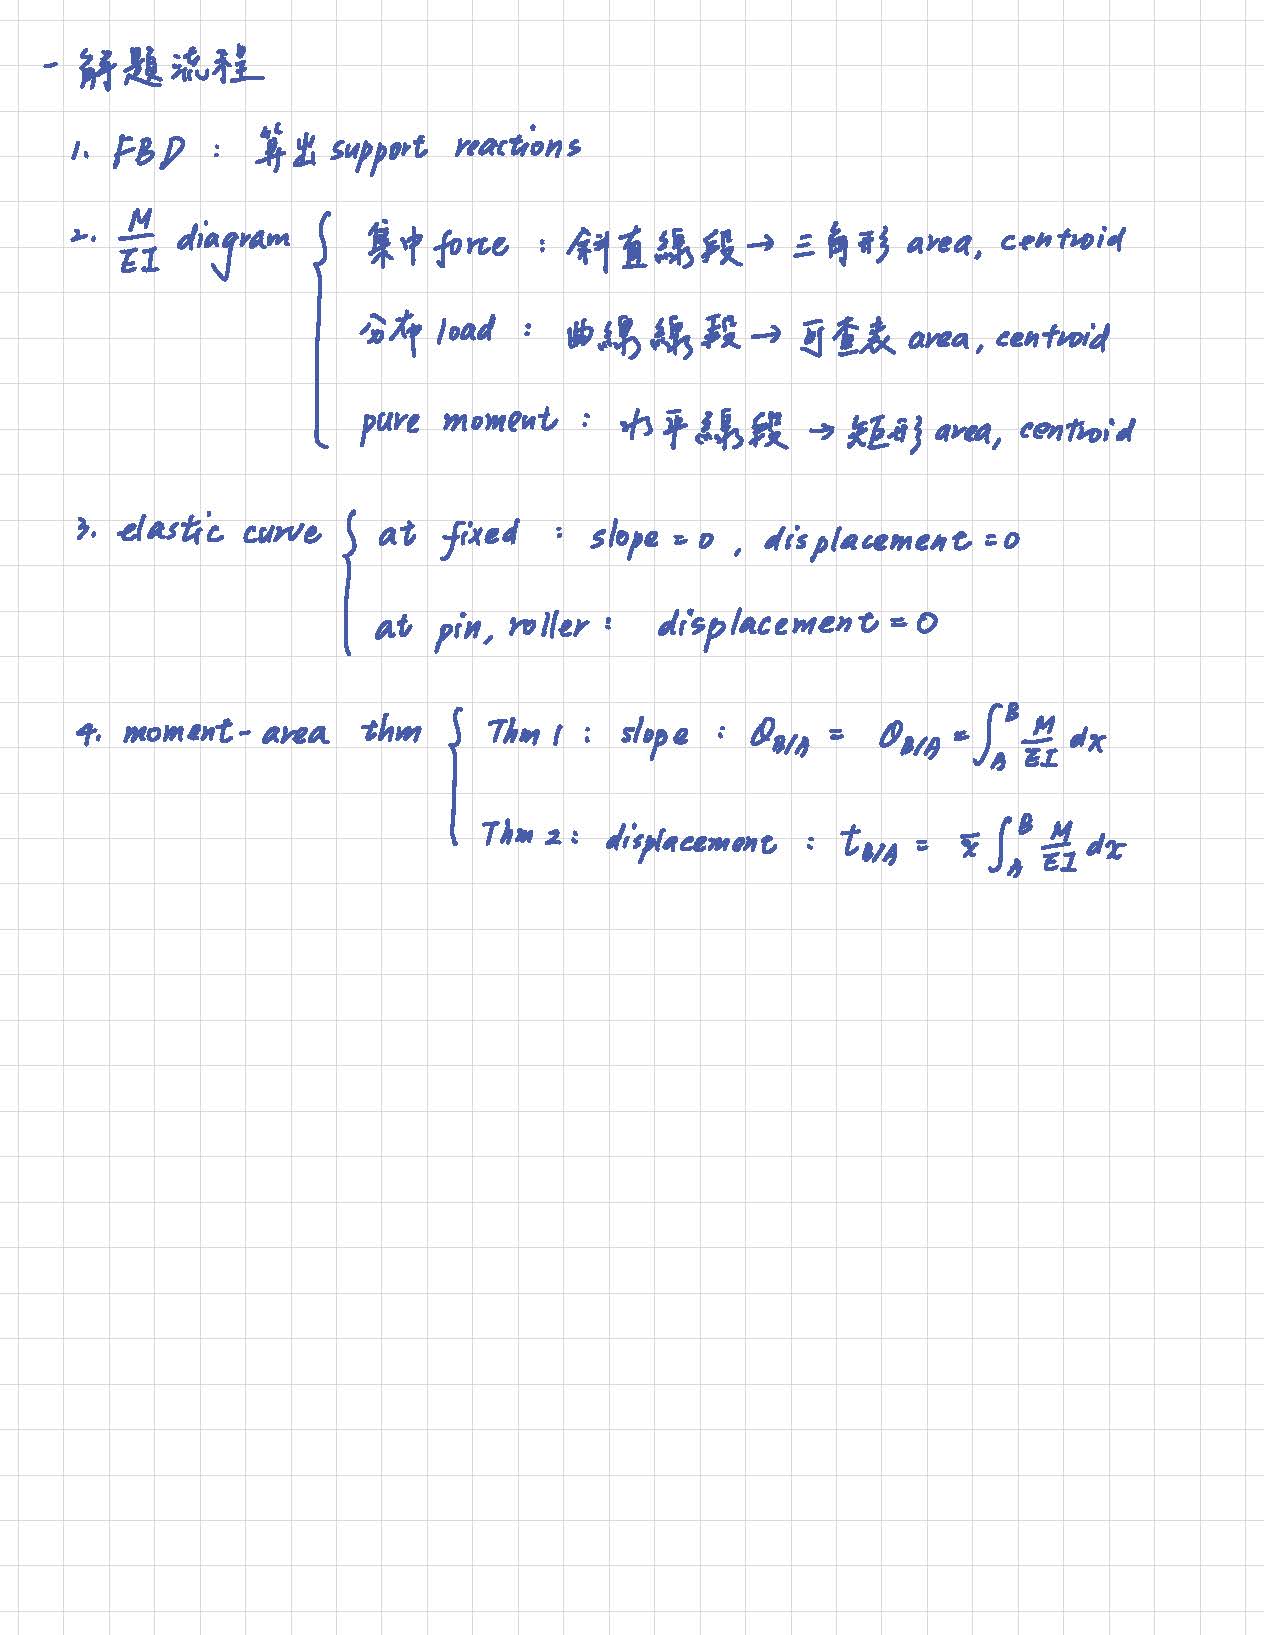 - 解題流程
1. FBD : 算出 support reactions
2. M/EI diagram { 集中 force : 斜直線段 → 三角形 area, centroid
分布 load : 曲線線段 → 可查表 area, centroid
pure moment : 水平線段 → 矩形 area, centroid
3. elastic curve { at fixed : slope = 0 , displacement = 0
at pin, roller : displacement = 0
4. moment-area thm { Thm 1 : slope : θ_{B/A} = θ_{B/A} = ∫_A^B M/EI dx
Thm 2 : displacement : t_{B/A} = x̄ ∫_A^B M/EI dx